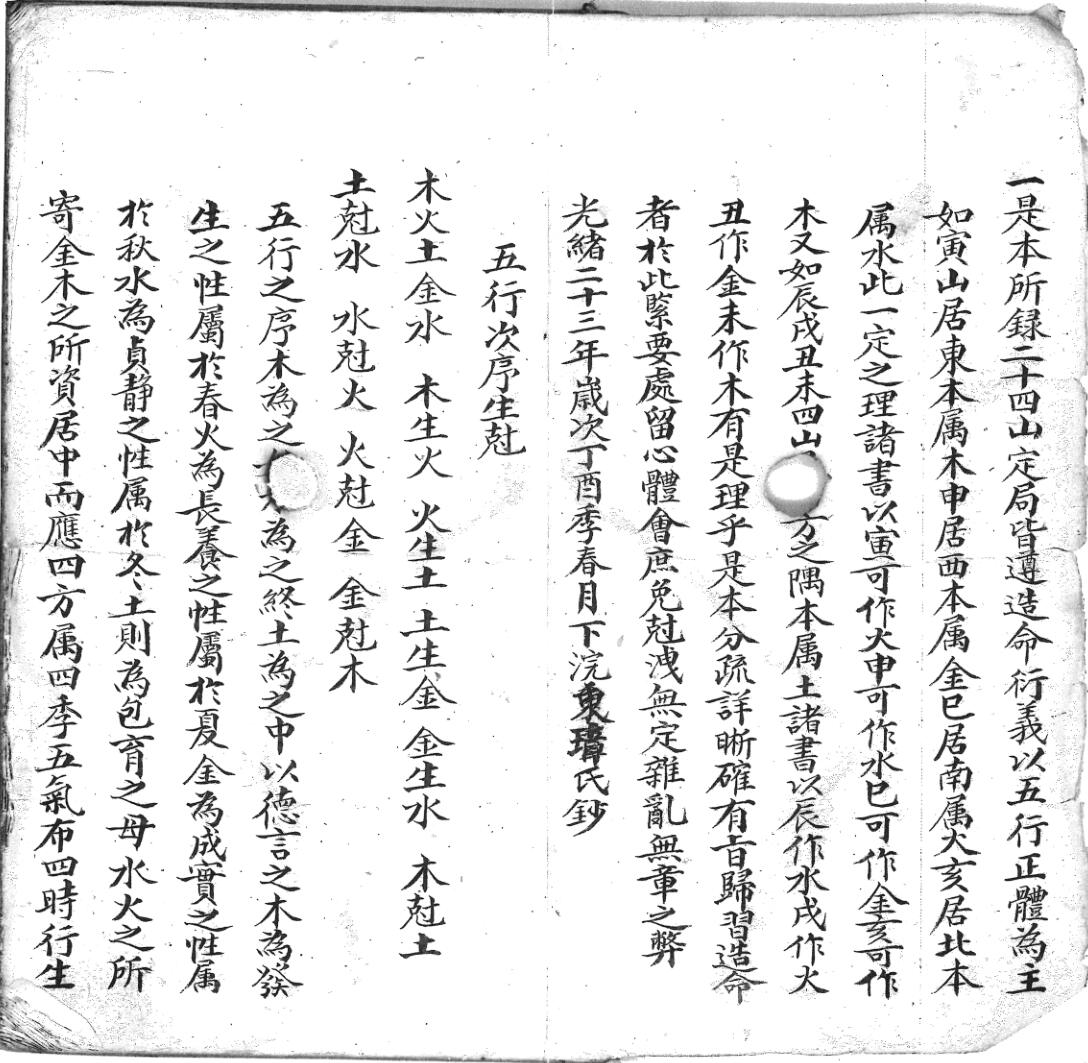 一是本所録二十四山定局皆遵造命衍義以五行正體為主
如寅山居東本属木申居西本属金巳居南属火亥居北本
属水此一定之理諸書以寅可作火申可作水巳可作金亥可作
木又如辰戌丑未四山方之隅本属土諸書以辰作水戌作火
丑作金未作木有是理乎是本分疏詳晰確有旨歸習造命
者於此緊要處留心體會庶免尅洩無定雜亂無章之弊
光緒二十三年歳次丁酉季春月下浣東璋氏鈔
五行次序生尅
木火土金水 木生火 火生土 土生金 金生水 木尅土
土尅水 水尅火 火尅金 金尅木
五行之序木為之為之終土為之中以德言之木為發
生之性屬於春火為長養之性屬於夏金為成實之性属
於秋水為貞静之性属於冬土則為包育之母水火之所
寄金木之所資居中而應四方属四季五氣布四時行生